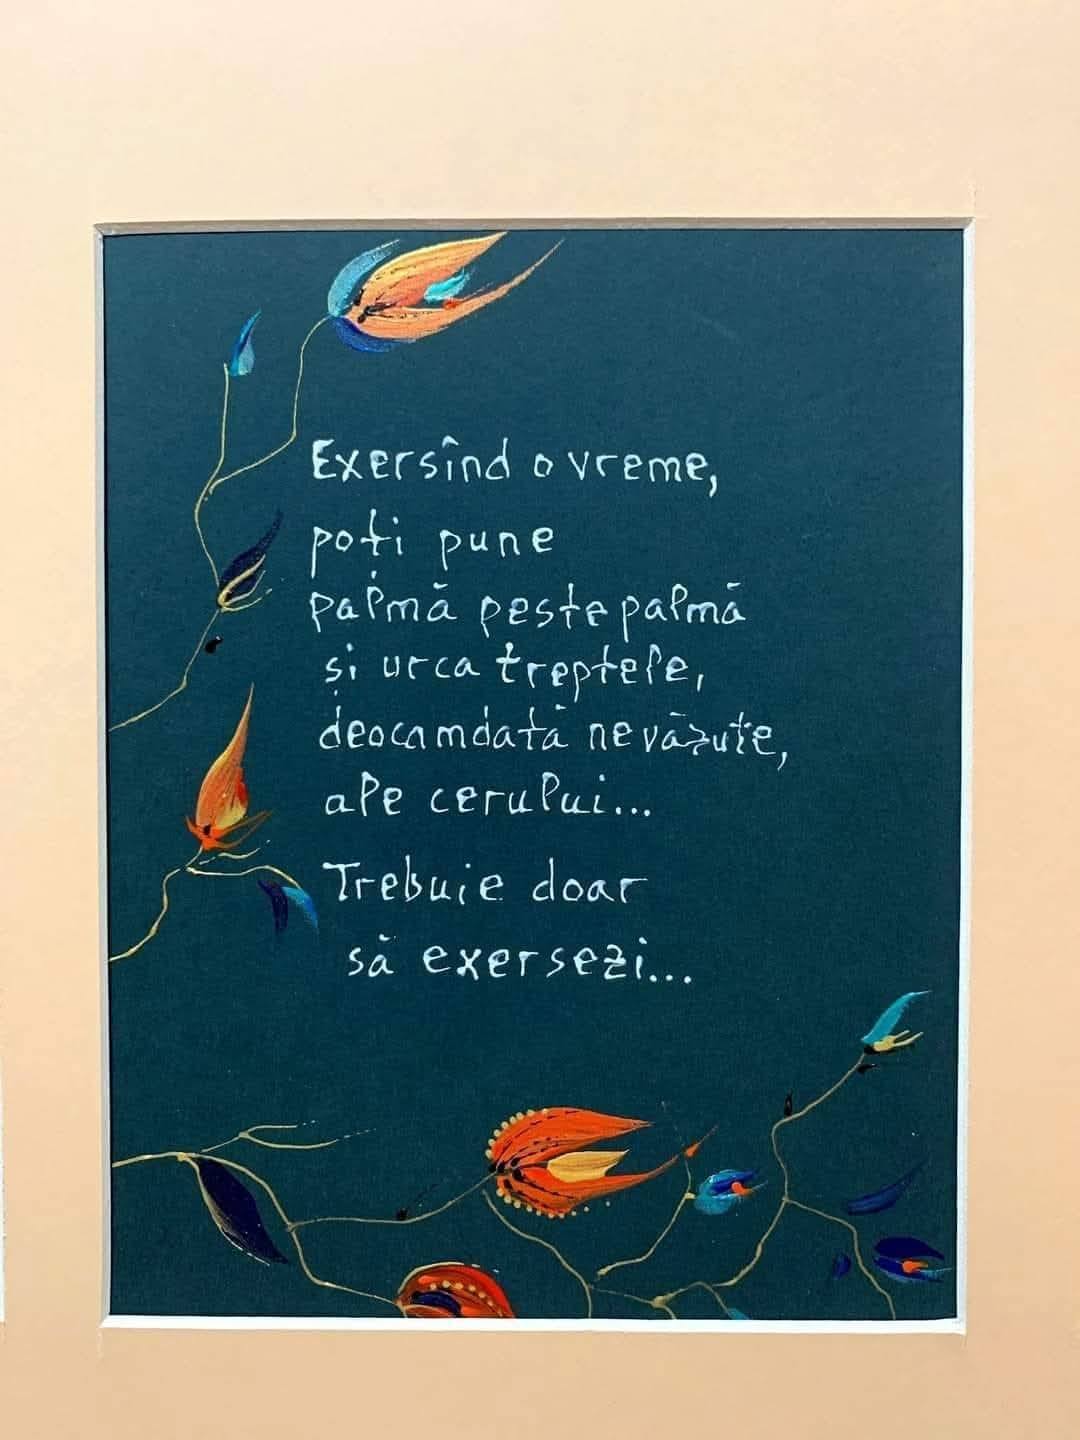 Exersînd o vreme,
poți pune
palmă peste palmă
și urca treptele,
deocamdată nevăzute,
ale cerului...
Trebuie doar
să exersezi...